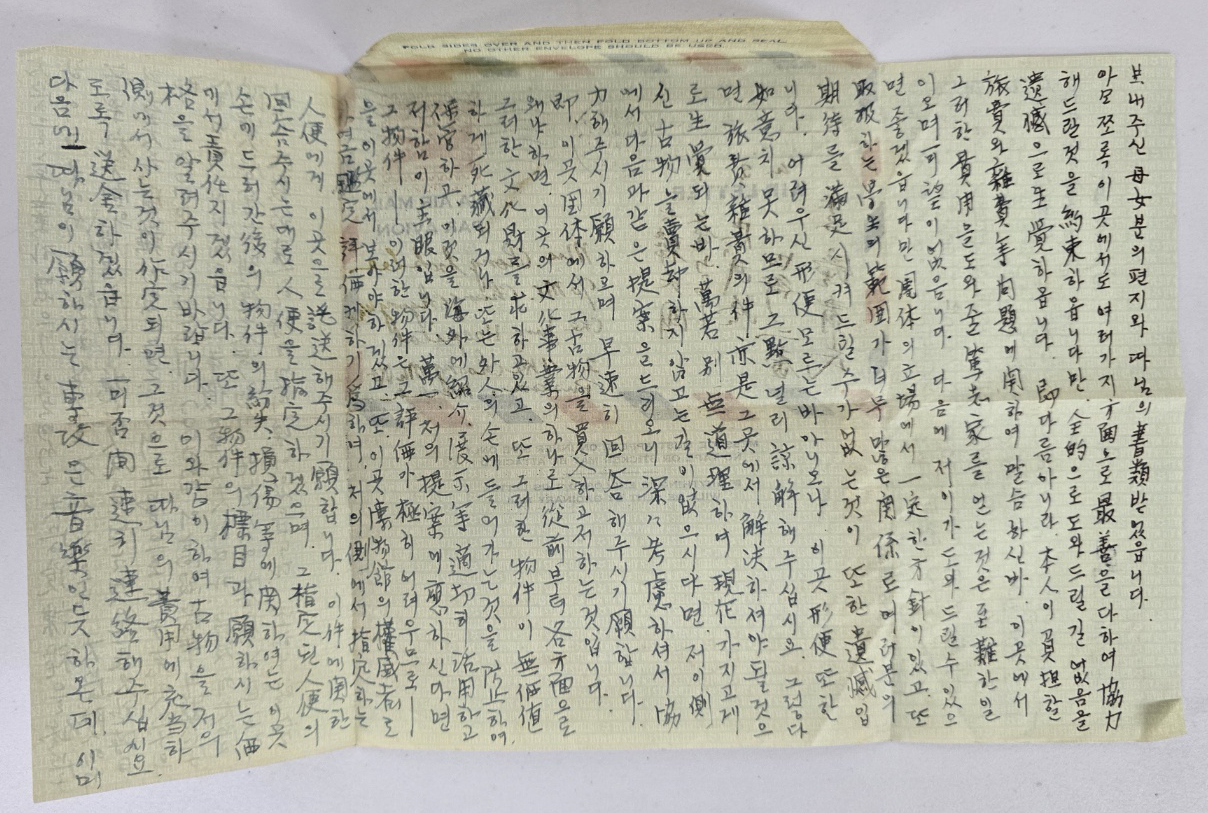 FOLD SIDES OVER AND THEN FOLD BOTTOM UP AND SEAL
NO OTHER ENVELOPE SHOULD BE USED
보내주신 母女분의 편지와 따님의 書類받었읍니다.
아모쪼록 이곳에서도 여러가지 方面으로 最善을 다하여 協力
해드릴것을 約束하옵니다만. 全的으로 도와드릴 길 없음을
遺憾으로 生覺하옵니다. 即 다름아니라. 本人이 負担할
旅費와 雜費等 問題에 関하여 말슴하신바. 이곳에서
그러한 費用을 도와줄 篤志家를 얻는것은 至難한 일
이오며 希望이 없음니다. 다음에 저이가 도와드릴수있으
면 좋겠읍니다만 團体의 立場에서 一定한 方針이 있고. 또
取扱하는 範囲가 너무 많은 関係로 여러분의
期待를 滿足시켜 드릴수가 없는것이 또한 遺憾입
니다. 어려우신 形便 모르는바 아니오나 이곳 形便 또한
如意치 못하므로 그 點 널리 諒解해주십시요 그렇다
면 旅費 雜費의 件 亦是 그곳에서 解決하셔야 될것으
로 生覺되는바. 萬若 別 無道理하여 現在 가지고게
신 古物을 賣却하지 않고는 길이 없으시다면. 저이 側
에서 다음과 같은 提案을 드리오니 深深 考慮하셔서 協
力해주시기 願하오며 早速히 回答해주시기 願합니다.
即. 이곳 団体에서 그 古物을 買入하고저 하는것입니다.
왜냐하면. 이곳의 文化事業의 하나로 從前부터 各方面으로
그러한 文化財를 求하고있고. 또 그러한 物件이 無価値
하게 死藏되거나 또는 外人의 손에 들어가는것을 防止하여.
保管하고. 이것을 海外에 紹介. 展示等 適切히 活用하고
저 함이 主眼입니다. 萬一. 저의 提案에 應하신다면
그 物件 이러한 物件은 그 評価가 極히 어려우므로
을 이곳에서 보아야 하겠고. 또. 이곳 博物館의 權威者로
하여금 鑑定評価케하기 爲하여. 저의 側에서 指定하는
人便에게 이곳으로 託送해주시기 願합니다. 이件에 関한
回答주시는대로 人便을 指定하겠으며. 그 指定된 人便의
손에 드러간後의 物件의 紛失. 損傷等에 関하여는 이곳
에서 責任지겠읍니다. 또 그 物件의 標目과 願하시는 価
格을 알려주시기 바랍니다. 이와같이 하여 古物을 저의
側에서 사는것이 作定되면. 그것으로 따님의 費用에 充当하
도록 送金하겠읍니다. 可否間 速히 連絡해주십시요.
다음에 따님이 願하시는 專攻은 音樂인듯 하온데. 이미